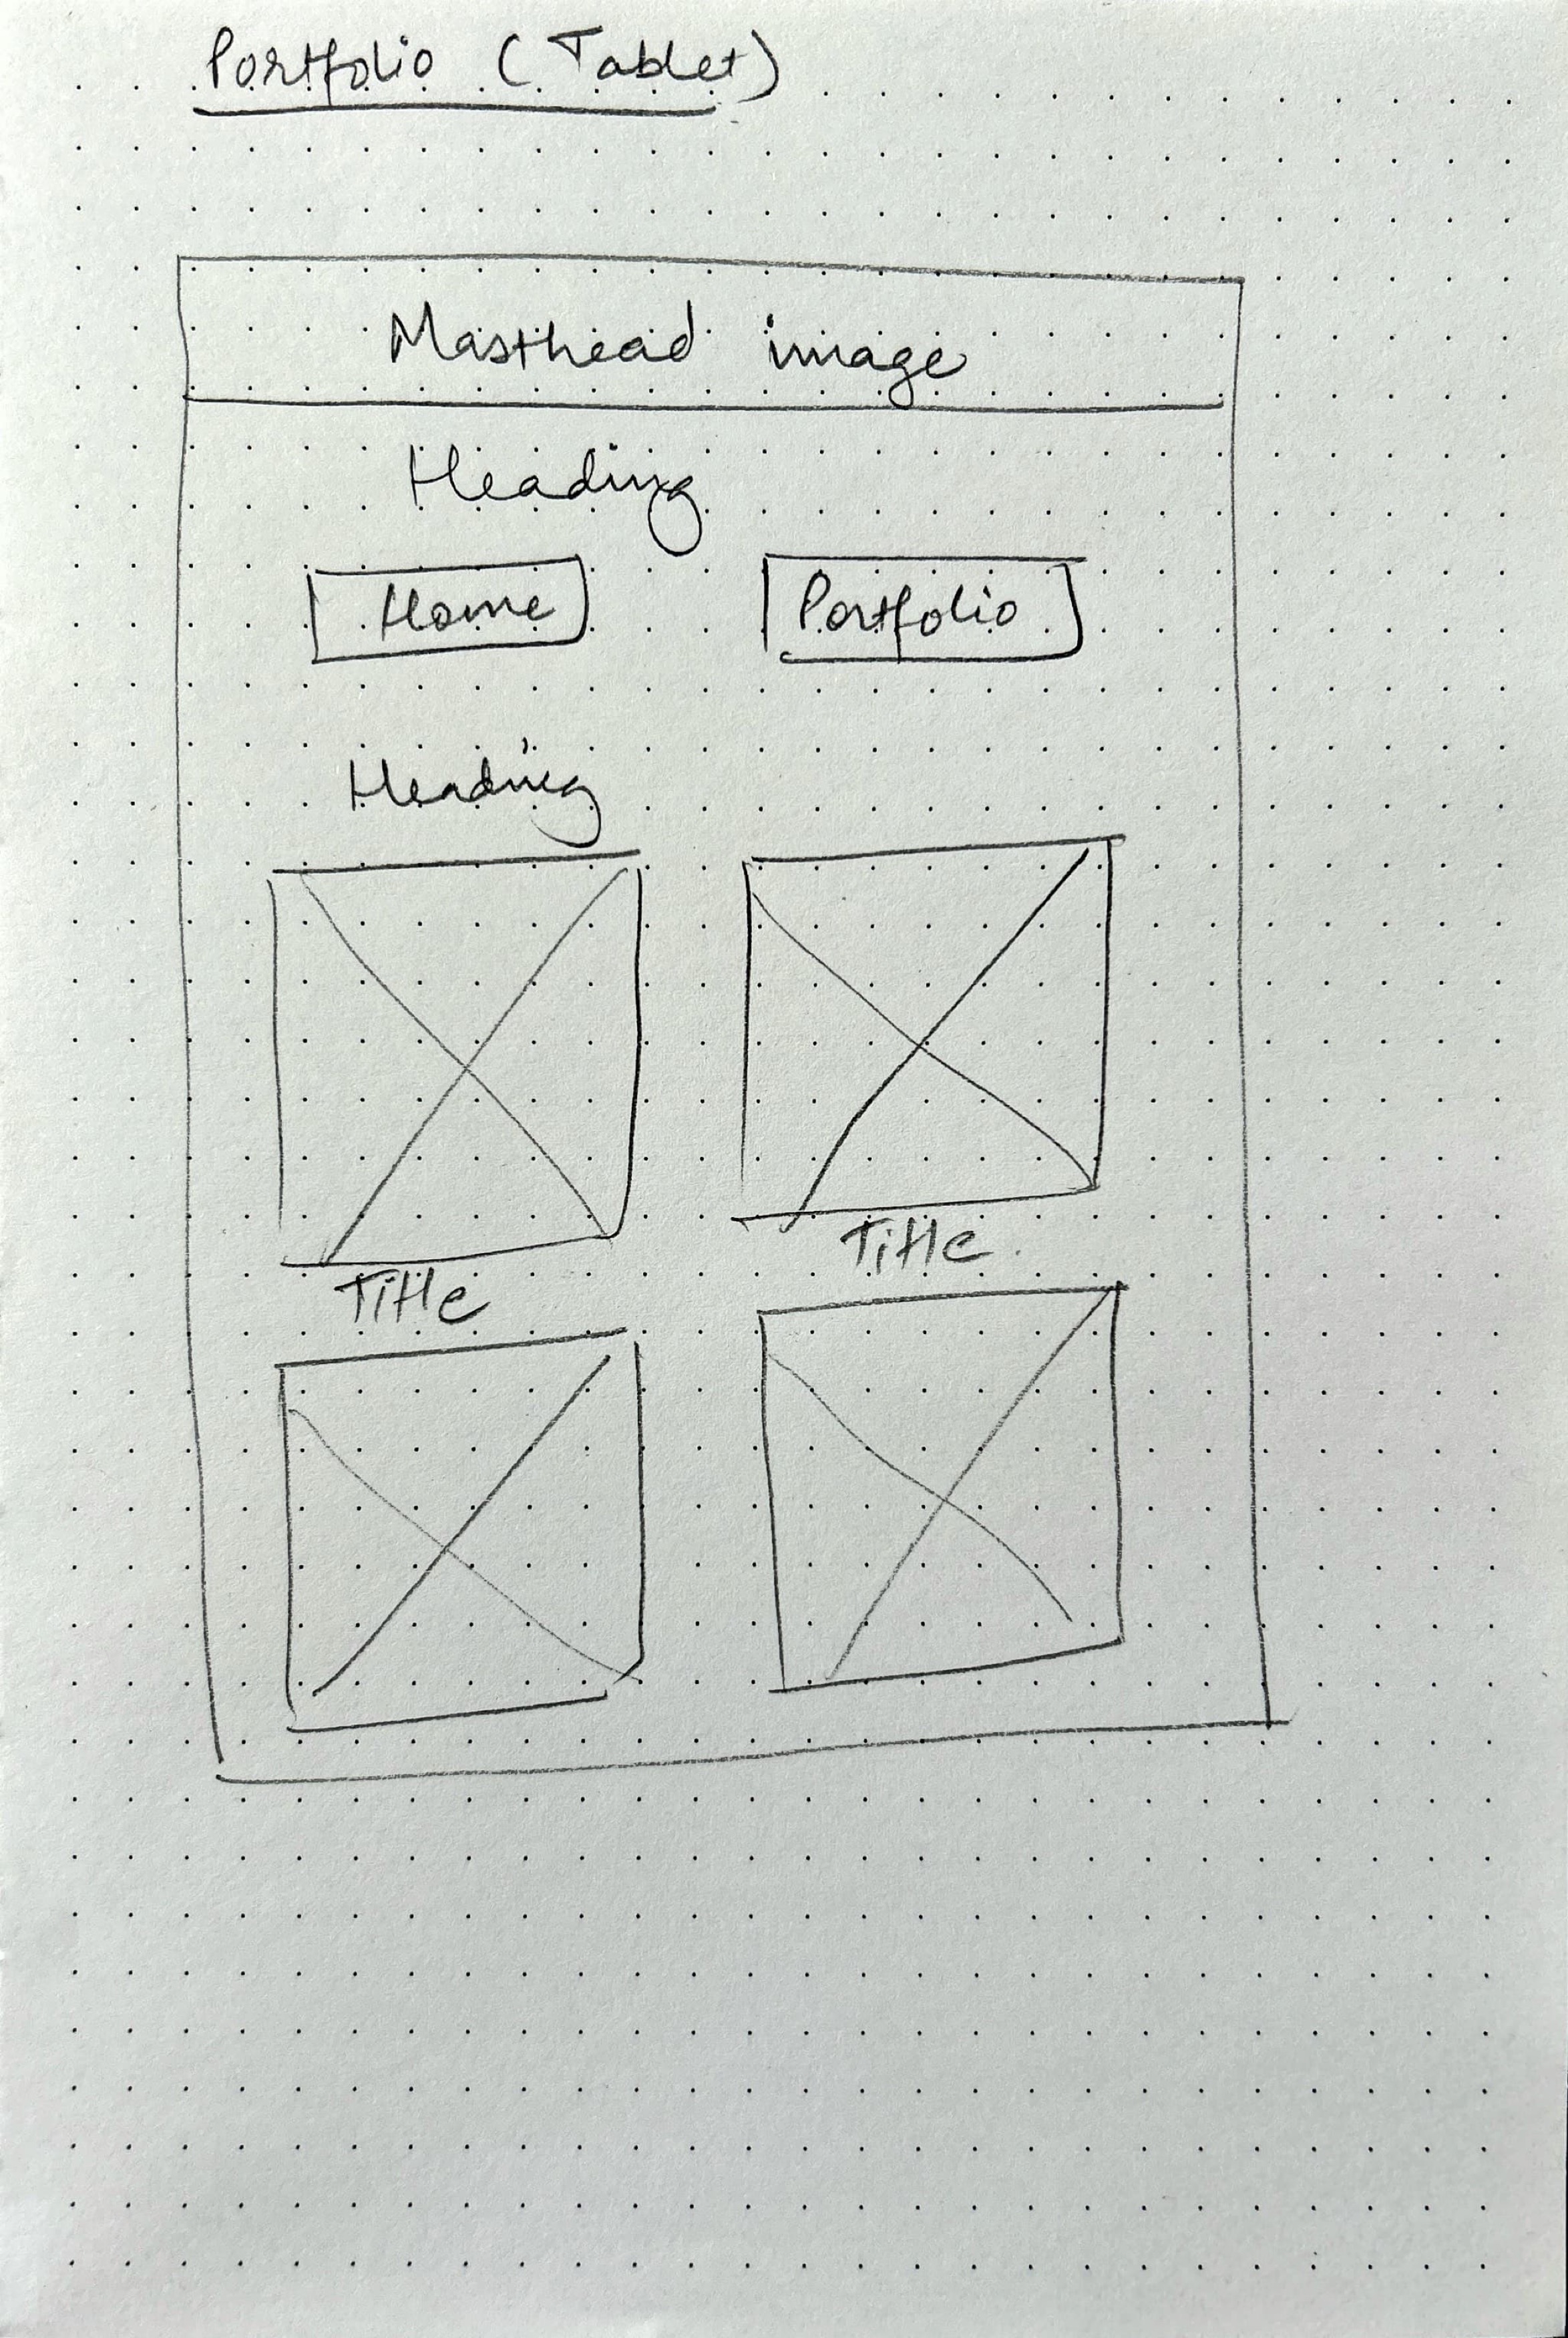 Portfolio (Tablet)
Masthead image
Heading
Home Portfolio
Heading
Title Title